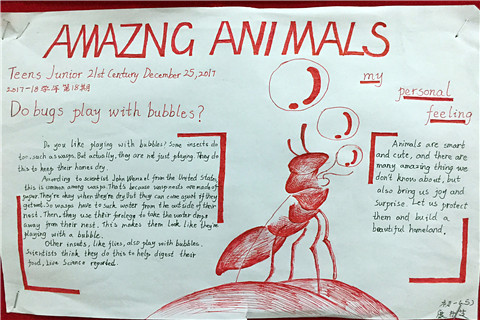 AMAZNG ANIMALS
Teens Junior 21st Century December 25, 2017
2017-18学年 第18期
my
personal
feeling
Do bugs play with bubbles?
Do you like playing with bubbles? Some insects do
too, such as wasps. But actually, they are not just playing. They do
this to keep their homes dry.
According to scientist John Wenzel from the United States,
this is common among wasps. That's because wasp nests are made of
paper. They're okay when they're dry. But they can come apart if they
get wet. So wasps have to suck water from the outside of their
nest. Then, they use their forelegs to take the water drops
away from their nest. This makes them look like they're
playing with a bubble.
Other insects, like flies, also play with bubbles.
Scientists think they do this to help digest their
food, Live Science reported.
Animals are smart
and cute, and there are
many amazing thing we
don't know about, but
also bring us joy and
surprise. Let us protect
them and build a
beautiful homeland.